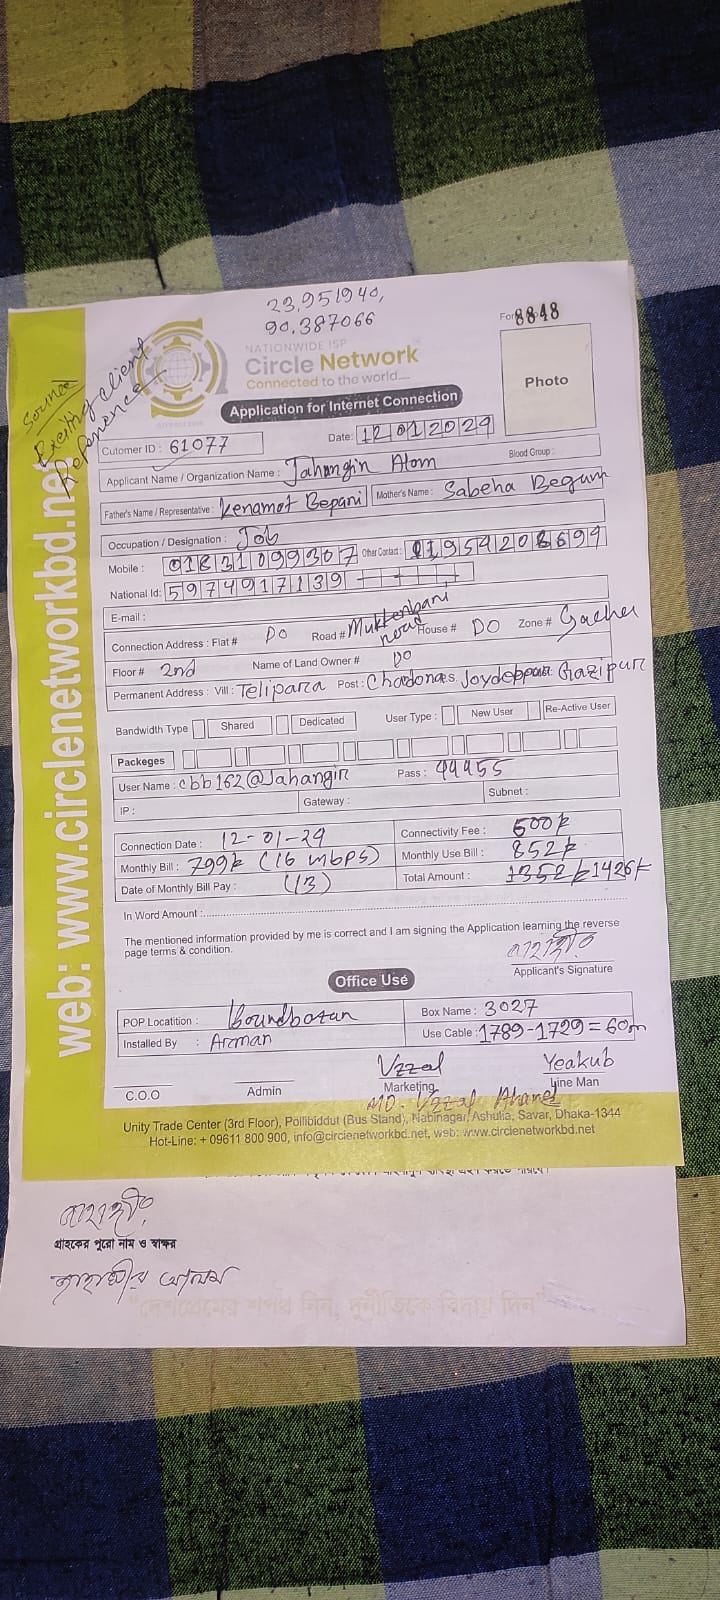 23,951940,
90,387066
Form 8848
Source
Exciting client
Reference
NATIONWIDE ISP
Circle Network
Connected to the world....
Photo
Application for Internet Connection
Cutomer ID : 61077
Date: 12 01 2024
Applicant Name / Organization Name : Jahangin Alom Blood Group :
Father's Name / Representative : Kenamot Bepani Mother's Name : Sabeha Begum
Occupation / Designation : Job
Mobile : 01831099307 Other Contact : 01954208694
National Id: 5974917139
E-mail :
Connection Address : Flat # DO Road # Muktenbani road House # DO Zone # Gacha
Floor # 2nd Name of Land Owner # DO
Permanent Address : Vill : Telipara Post : Joydebpur Gazipur
Bandwidth Type Shared Dedicated User Type : New User Re-Active User
Packeges
User Name : cbb162@Jahangin Pass : 44455
IP : Gateway : Subnet :
Connection Date : 12-01-24 Connectivity Fee : 500k
Monthly Bill : 799k (16 mbps) Monthly Use Bill : 852k
Date of Monthly Bill Pay : (13) Total Amount : 1352k 1426k
In Word Amount :
The mentioned information provided by me is correct and I am signing the Application learning the reverse
page terms & condition.
জাহাঙ্গীর
Applicant's Signature
Office Use
POP Locatition : Box Name : 3027
Installed By : Arman Use Cable : 1789-1729=60m
Uzzal Yeakub
C.O.O Admin Marketing Line Man
MD. Uzzal Ahmed
Unity Trade Center (3rd Floor), Pollibiddut (Bus Stand), Nabinagar, Ashulia, Savar, Dhaka-1344
Hot-Line: + 09611 800 900, info@circlenetworkbd.net, web: www.circlenetworkbd.net
web: www.circlenetworkbd.net
জাহাঙ্গীর
গ্রাহকের পুরো নাম ও স্বাক্ষর
জাহাঙ্গীর আলম
"দেশপ্রেমের শপথ নিন, দুর্নীতিকে বিদায় দিন"